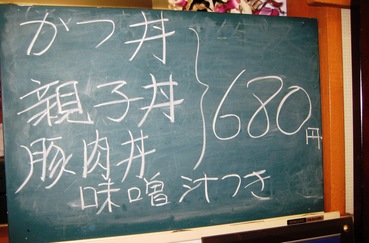 かつ丼
親子丼
豚肉丼
680円
味噌汁つき